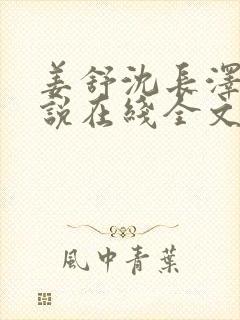 姜舒沈長澤
說在綫全文
風中青葉